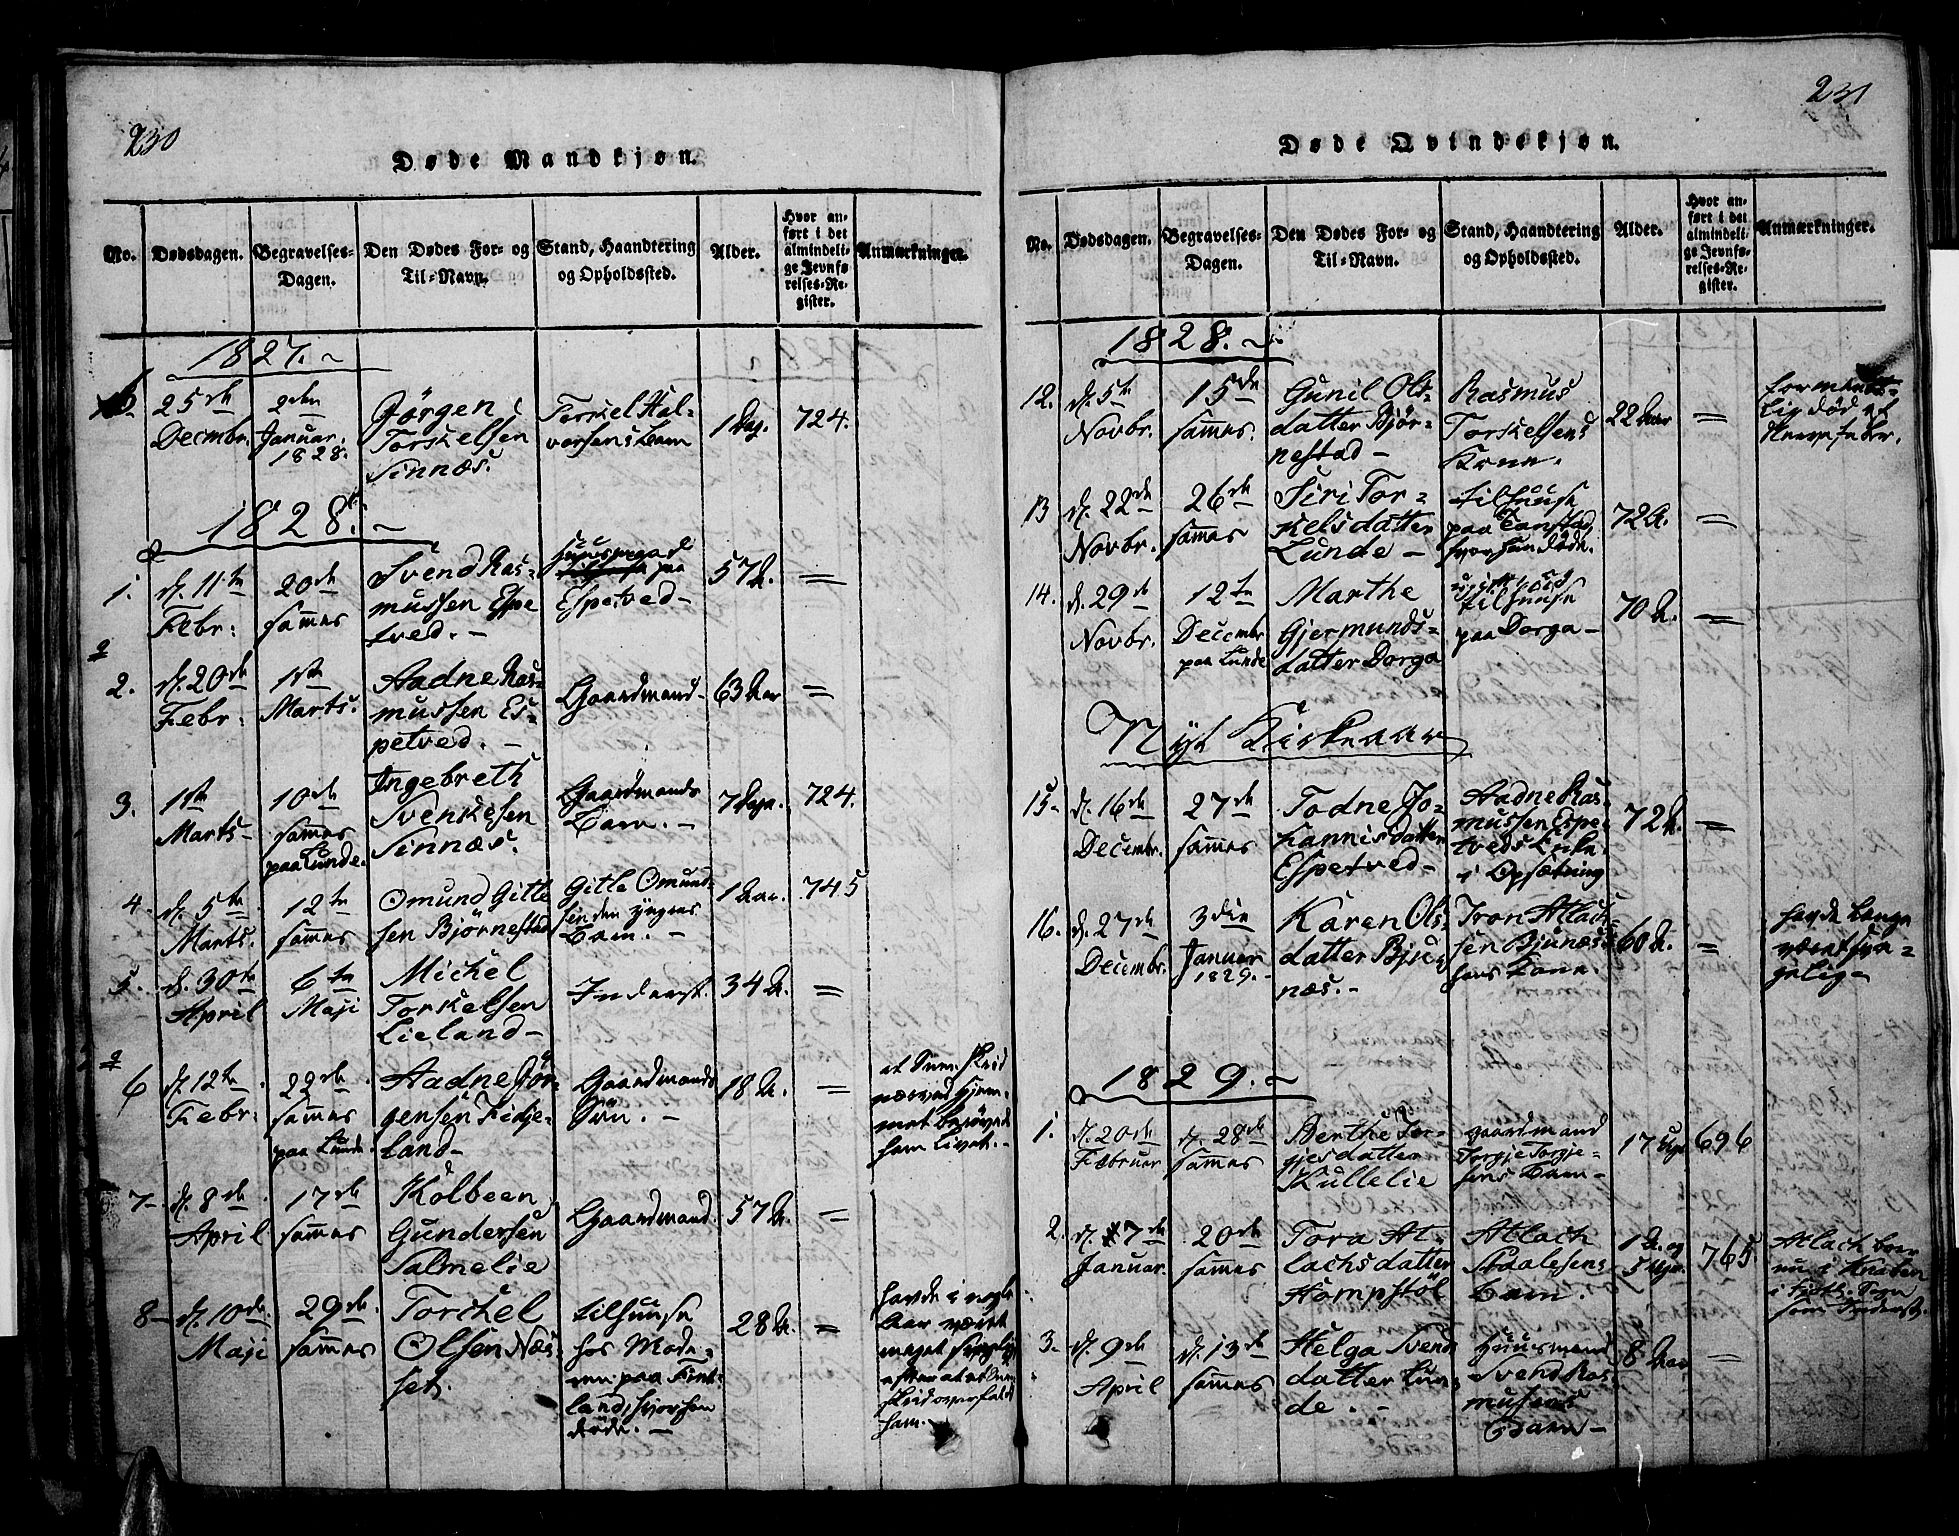 230
Døde Mandkjøn.
No.
Dødsdagen.
Begravelses-
Dagen.
Den Dødes For- og
Til-Navn.
Stand, Haandtering
og Opholdssted.
Alder.
Hvor an-
ført i det
almindeli-
ge Jevnfø
relses-Re-
gister.
Anmærkninger.
1827.
25de
Decembr.
2den
Januar.
1828.
Jørgen
Torkelsen
Sinnæs.
Torkel Hal-
vorsens Barn
1 Dag.
724.
1828.
1.
d. 11te
Febr:
20de
sammes
Svend Ras-
mussen Espe
tved.
Huusmand
paa
Espetved
57 A.
2.
d. 20de
Febr:
1ste
Marts.
Aadne Ras-
mussen Es-
petved.
Gaardmand
63 Aar
3.
1ste
Marts
10de
sammes
paa Lunde.
Ingebreth
Svenkesen
Sinnæs.
Gaardmands
Barn.
7 Dage.
724.
4.
d. 5te
Marts.
12te
sammes
Omund Gitle
sen Bjørnestad
Gitle Omund-
sen den yngres
Barn.
1 Aar.
745
5.
d. 30te
April
6te
Maji
Michel
Torkelsen
Lieland
Inderst.
34 A.
6
d. 12te
Febr:
22de
sammes
paa Lunde
Aadne Jør-
gensen Fidje-
land
Gaardmands
Søn.
18 A.
at Snee Skred
nærved Hjem-
met berøvede
ham Livet.
7
d. 8de
April
17de
sammes
Kolbeen
Gundersen
Salmelie
Gaardmand.
57 A.
8
d. 10de
Maji
29de
sammes
Torkel
Olsen Næs-
set.
tilhuuse
hos Mode-
ren paa Fint-
land, hvor han
døde.
28 A.
havde i nogle
Aar været
meget svagelig
efter at et Snee
skred overfaldt
ham.
231
Døde Qvindekjøn.
No.
Dødsdagen.
Begravelses-
Dagen.
Den Dødes For- og
Til-Navn.
Stand, Haandtering
og Opholdssted.
Alder.
Hvor an-
ført i det
almindeli-
ge Jevnfø-
relses-Re-
gister.
Anmærkninger.
1828.
12.
d. 5te
Novbr.
15de
sammes.
Gunil Ols-
datter Bjør-
nestad
Rasmus
Torkelsens
Kone.
22 Aar
død af
13
d. 22de
Novbr.
26de
sammes
Siri Tor-
kelsdatter
Lunde
tilhuuse
paa Tanstad
hvor hun døde.
72 A.
14.
d. 29de
Novbr.
12te
Decembr
paa Lunde
Marthe
Gjermunds-
datter Dorga
tilhuuse
paa Dorga
70 A.
Nyt Kirkeaar
15
d. 16de
Decembr.
27de
sammes
Todne Jo-
hannisdatter
Espetved
Aadne Ras-
mussen Espe-
tveds Enke
i Opsætning
72 A.
16.
d. 27de
Decembr.
3die
Januar
1829.
Karen Ols-
datter Bju
næs.
Tron Atlach-
sen Bjunæs
hans Kone.
60 A.
havde længe
været sva-
gelig
1829.
1.
d. 20de
Februar
d. 28de
sammes
Berthe Tor-
gjesdatter
Kullelie
gaardmand
Torgje Torgje-
sens Barn
17 Uger
696
2.
d. 7de
Januar.
20de
sammes
Tora At-
lachsdatter
Hompstøl
Atlach
Staalesens
Barn.
1 A. og
5 Uger.
765
Atlach boer
nu i Knaben
i Fjotl. Sogn
som Inderst.
3.
d. 9de
April
d. 13de
sammes
Helga Svends
datter Lun-
de.
Huusmand
Svend Ras-
musens
Barn
8 Aar